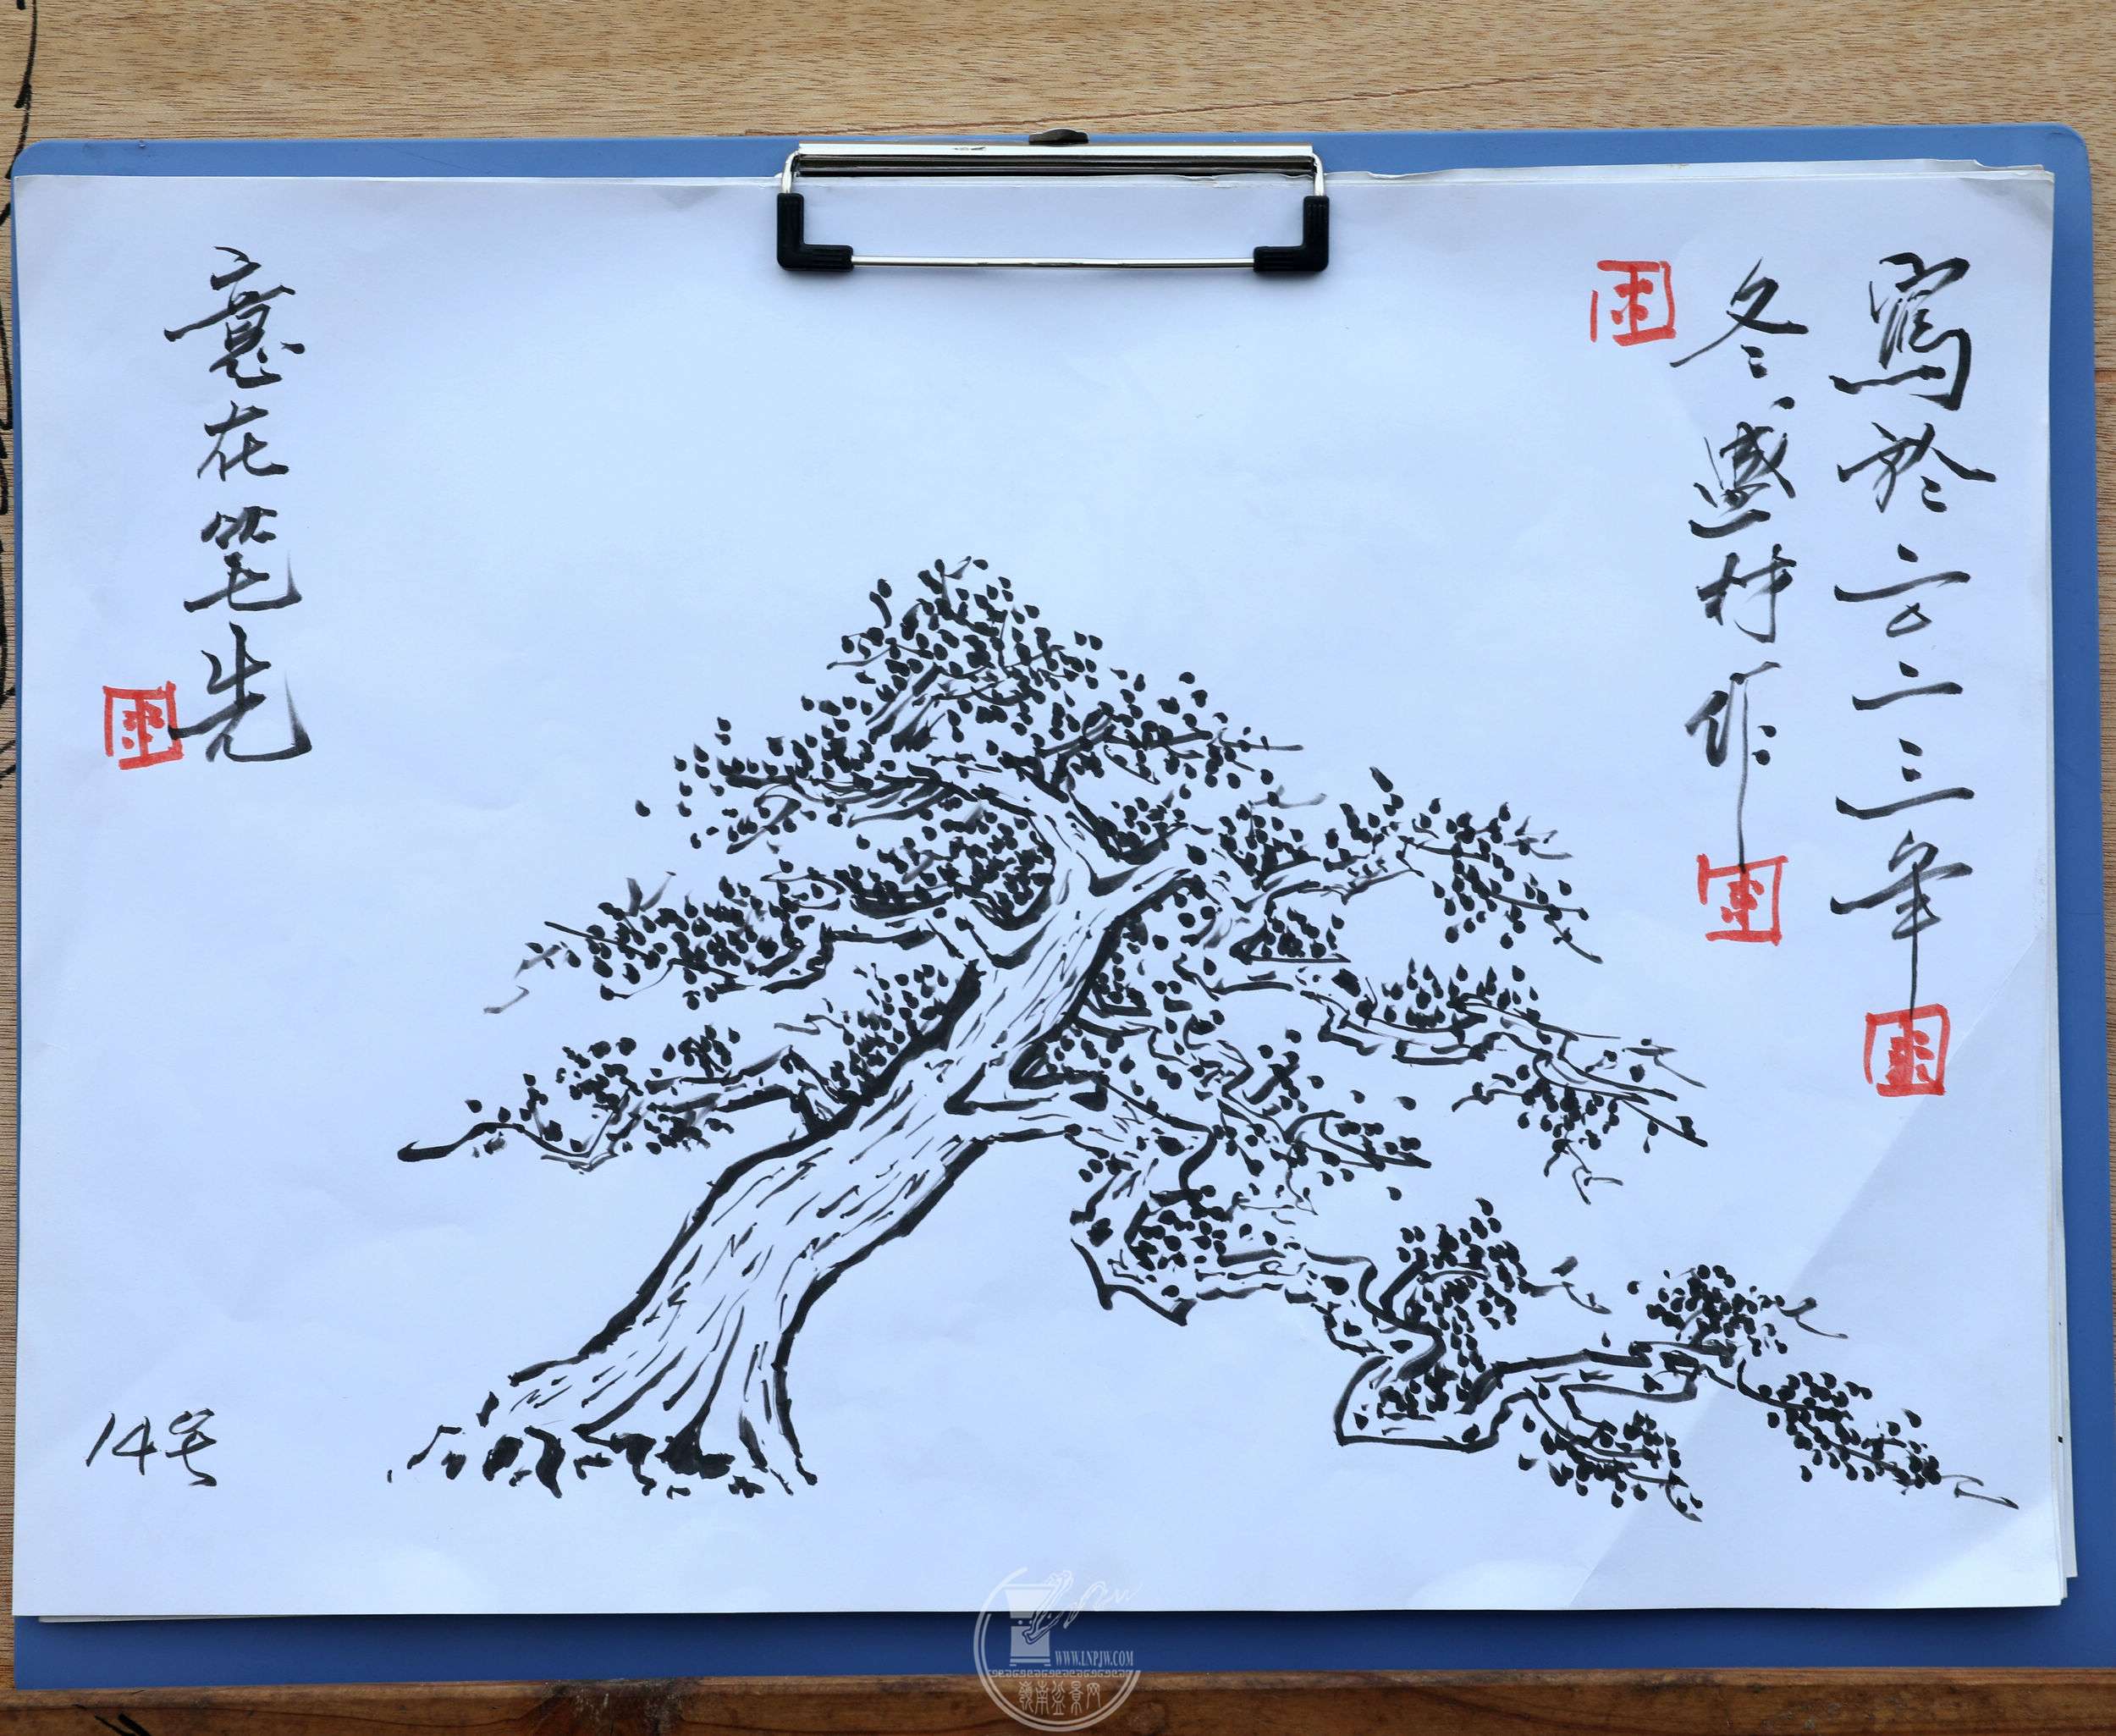 寫於二〇二三年
冬、盛村作
意在笔先
14号
WWW.LNPJW.COM
嶺南盆景网